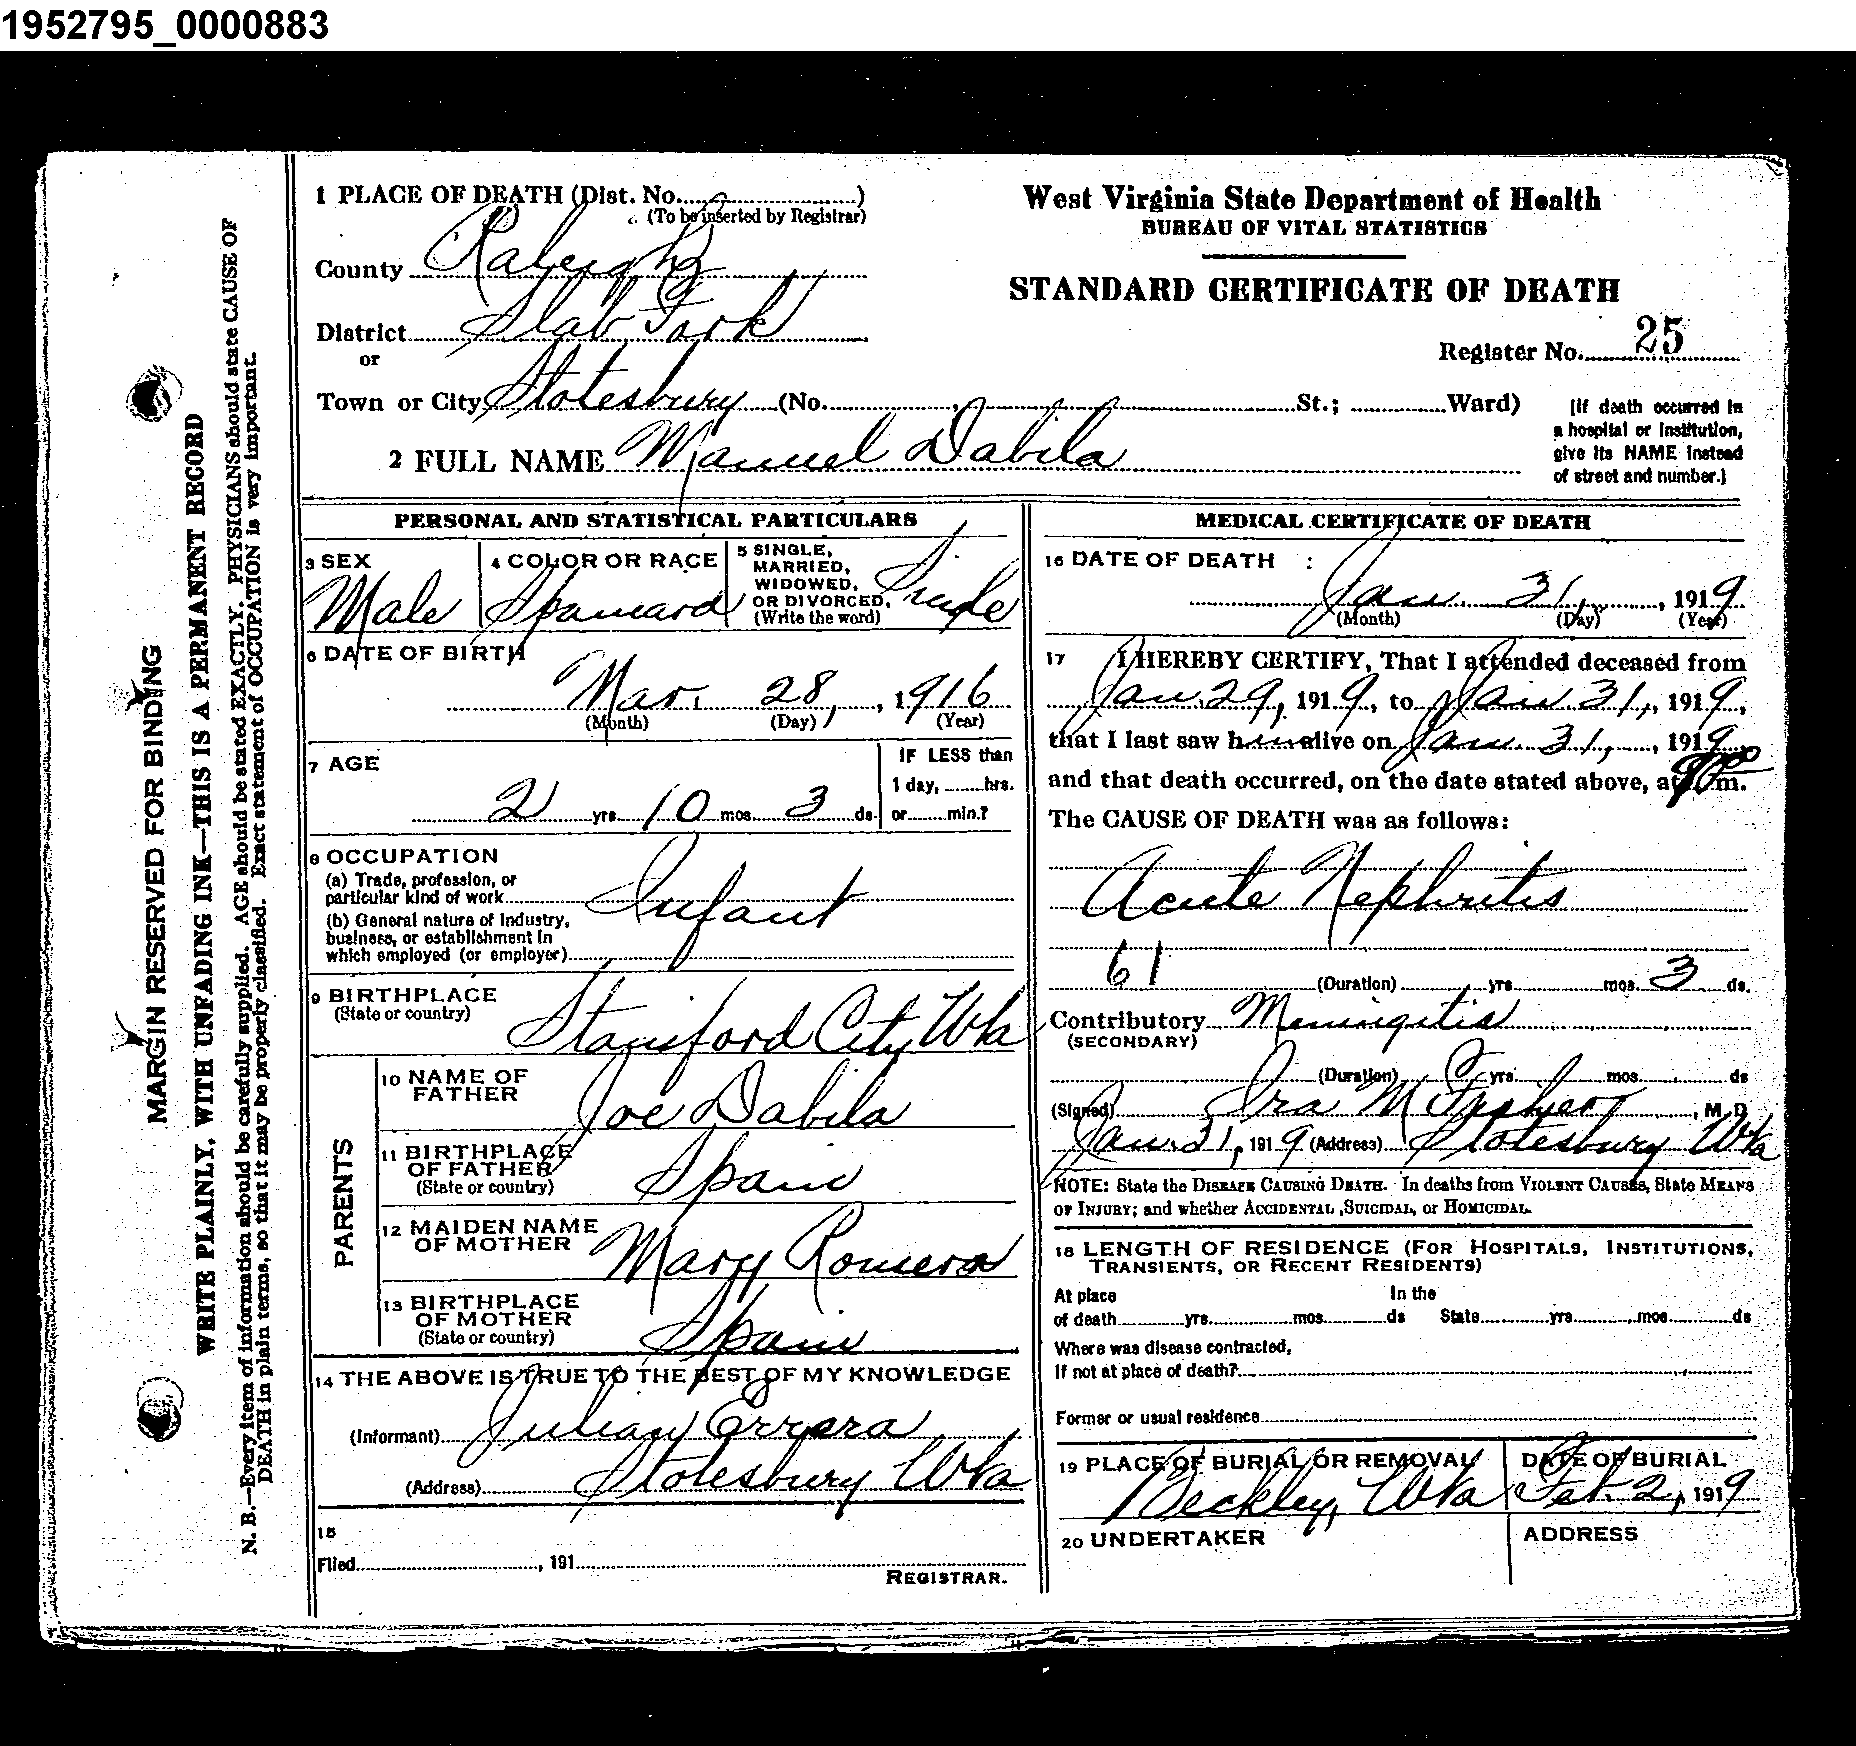 1952795_0000883
MARGIN RESERVED FOR BINDING
WRITE PLAINLY, WITH UNFADING INK—THIS IS A PERMANENT RECORD
N. B.—Every item of information should be carefully supplied. AGE should be stated EXACTLY. PHYSICIANS should state CAUSE OF
DEATH in plain terms, so that it may be properly classified. Exact statement of OCCUPATION is very important.
1 PLACE OF DEATH (Dist. No. )
(To be inserted by Registrar)
County Raleigh
District Slab Fork
or
Town or City Stotesbury (No. , St.; Ward)
2 FULL NAME Manuel Dabila
West Virginia State Department of Health
BUREAU OF VITAL STATISTICS
STANDARD CERTIFICATE OF DEATH
Register No. 25
[If death occurred in
a hospital or institution,
give its NAME instead
of street and number.]
PERSONAL AND STATISTICAL PARTICULARS
3 SEX
Male
4 COLOR OR RACE
Spaniard
5 SINGLE,
MARRIED,
WIDOWED,
OR DIVORCED,
(Write the word)
Single
6 DATE OF BIRTH
Mar. 28, , 1916
(Month) (Day) (Year)
7 AGE
2 yrs. 10 mos. 3 ds.
IF LESS than
1 day, hrs.
or min.?
8 OCCUPATION
(a) Trade, profession, or
particular kind of work
Infant
(b) General nature of industry,
business, or establishment in
which employed (or employer)
9 BIRTHPLACE
(State or country)
Stansford City WVa
PARENTS
10 NAME OF
FATHER
Joe Dabila
11 BIRTHPLACE
OF FATHER
(State or country)
Spain
12 MAIDEN NAME
OF MOTHER
Mary Romera
13 BIRTHPLACE
OF MOTHER
(State or country)
Spain
14 THE ABOVE IS TRUE TO THE BEST OF MY KNOWLEDGE
(Informant) Julian Errera
(Address) Stotesbury WVa
15
Filed , 191
REGISTRAR.
MEDICAL CERTIFICATE OF DEATH
16 DATE OF DEATH :
Jan. 31, , 1919
(Month) (Day) (Year)
17 I HEREBY CERTIFY, That I attended deceased from
Jan. 29, 1919, to Jan 31, , 1919,
that I last saw him alive on Jan. 31, , 1919
and that death occurred, on the date stated above, at m.
The CAUSE OF DEATH was as follows:
Acute Nephritis
61
(Duration) yrs. mos. 3 ds.
Contributory Meningitis
(SECONDARY)
(Duration) yrs. mos. ds
(Signed) Ira M , M. D.
Jan. 31, 1919 (Address) Stotesbury WVa
NOTE: State the DISEASE CAUSING DEATH. In deaths from VIOLENT CAUSES, State MEANS
OF INJURY; and whether ACCIDENTAL, SUICIDAL, or HOMICIDAL.
18 LENGTH OF RESIDENCE (FOR HOSPITALS, INSTITUTIONS,
TRANSIENTS, OR RECENT RESIDENTS)
At place In the
of death yrs. mos. ds State yrs. mos. ds
Where was disease contracted,
If not at place of death?
Former or usual residence
19 PLACE OF BURIAL OR REMOVAL
Beckley, WVa
DATE OF BURIAL
Feb. 2, 1919
20 UNDERTAKER
ADDRESS